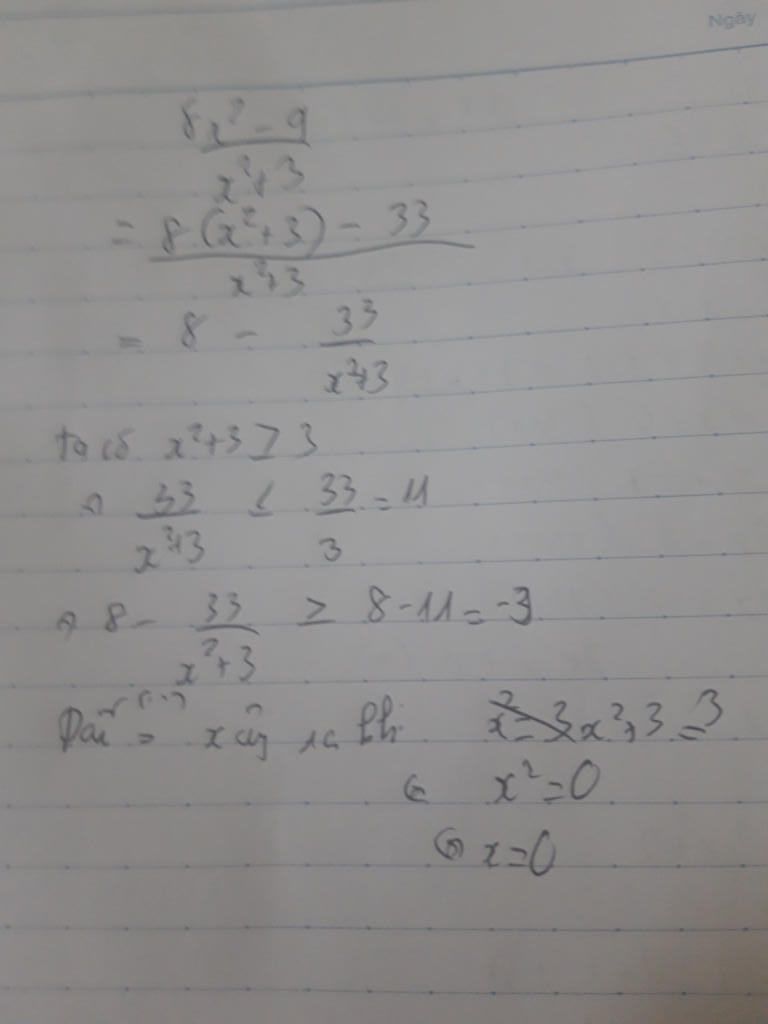 Ngày
8x² - 9
x²+3
= 8(x²+3) - 33
x²+3
= 8 - 33
x²+3
ta có x²+3 ≥ 3
⇒ 33 ≤ 33 = 11
x²+3 3
⇒ 8 - 33 ≥ 8 - 11 = -3
x²+3
Dấu "=" xảy ra khi x²+3 = 3
⇔ x² = 0
⇔ x = 0